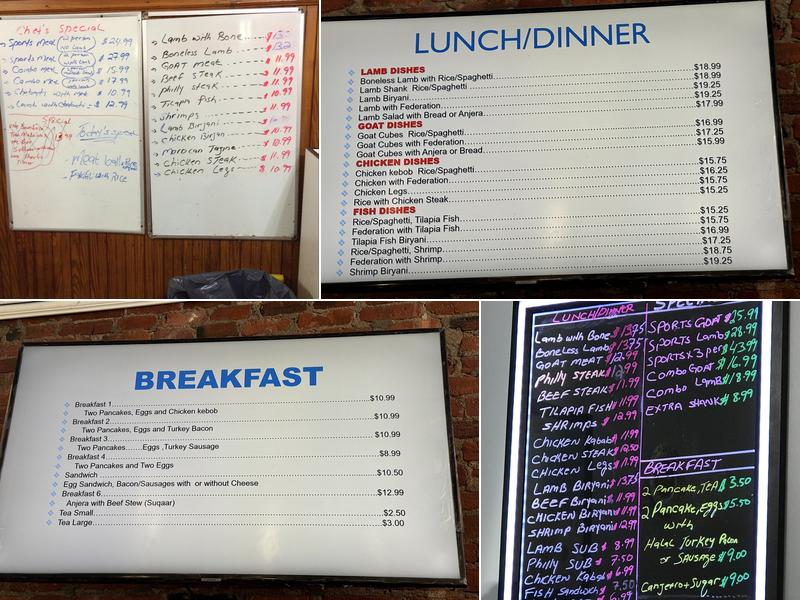 Chef's Special
Sports Meal
$24.99
Sports meal
$27.99
Combo Meal
$15.99
Combo Mea
$17.99
with meat $10.79
Lamb with
$12.79
Special
Today's special
Meat ball
with Rice
Lamb with Bone
Boneless Lamb
GOAT meat $11.99
Beef steak $11.99
Philly steak $11.99
Tilapia fish $10.99
Shrimps $11.99
Lamb Birjani
Chicken Birjan $10.77
Moroccan Tagne $10.99
Chicken STeak $11.99
Chicken Legs $10.99
LUNCH/DINNER
LAMB DISHES
Boneless Lamb with Rice/Spaghetti $18.99
Lamb Shank Rice/Spaghetti $18.99
Lamb Biryani $19.25
Lamb with Federation $19.25
Lamb Salad with Bread or Anjera $17.99
GOAT DISHES
Goat Cubes Rice/Spaghetti $16.99
Goat Cubes with Federation $17.25
Goat Cubes with Anjera or Bread $15.99
CHICKEN DISHES
Chicken kebob Rice/Spaghetti $15.75
Chicken with Federation $16.25
Chicken Legs $15.75
Rice with Chicken Steak $15.25
FISH DISHES
Rice/Spaghetti, Tilapia Fish $15.25
Federation with Tilapia Fish $15.75
Tilapia Fish Biryani $16.99
Rice/Spaghetti, Shrimp $17.25
Federation with Shrimp $18.75
Shrimp Biryani $19.25
BREAKFAST
Breakfast 1 $10.99
Two Pancakes, Eggs and Chicken kebob
Breakfast 2 $10.99
Two Pancakes, Eggs and Turkey Bacon
Breakfast 3 $10.99
Two Pancakes.......Eggs ,Turkey Sausage
Breakfast 4 $8.99
Two Pancakes and Two Eggs
Sandwich $10.50
Egg Sandwich, Bacon/Sausages with or without Cheese
Breakfast 6 $12.99
Anjera with Beef Stew (Suqaar)
Tea Small $2.50
Tea Large $3.00
LUNCH/DINNER
Lamb with Bone $13.75
Boneless Lamb $13.75
GOAT MEAT $12.99
Philly STEAK $12.99
BEEF STEAK $11.99
TILAPIA FISH $11.99
SHRIMPS $12.99
Chicken Kabab $11.99
Chicken STEAK $12.50
CHICKEN Legs $11.99
LAMB BIRYANI $13.75
BEEF Biryani $11.99
CHICKEN BIRYANI $11.99
SHRIMP BIRYANI $12.99
LAMB SUB $8.99
Philly SUB $7.50
Chicken Kabab $6.99
FISH Sandwich $7.50
6.99
SPORTS GOAT $25.99
SPORTS Lamb $28.99
SPORTS X 3 per $43.99
Combo GOAT $16.99
Combo LAMB $18.99
EXTRA SHANK $8.99
BREAKFAST
2 Pancake, TEA $3.50
2 Pancake, Eggs $5.50
with
Halal Turkey Bacon
or SAUSAGE $9.00
Canjeero + Sugar $9.00